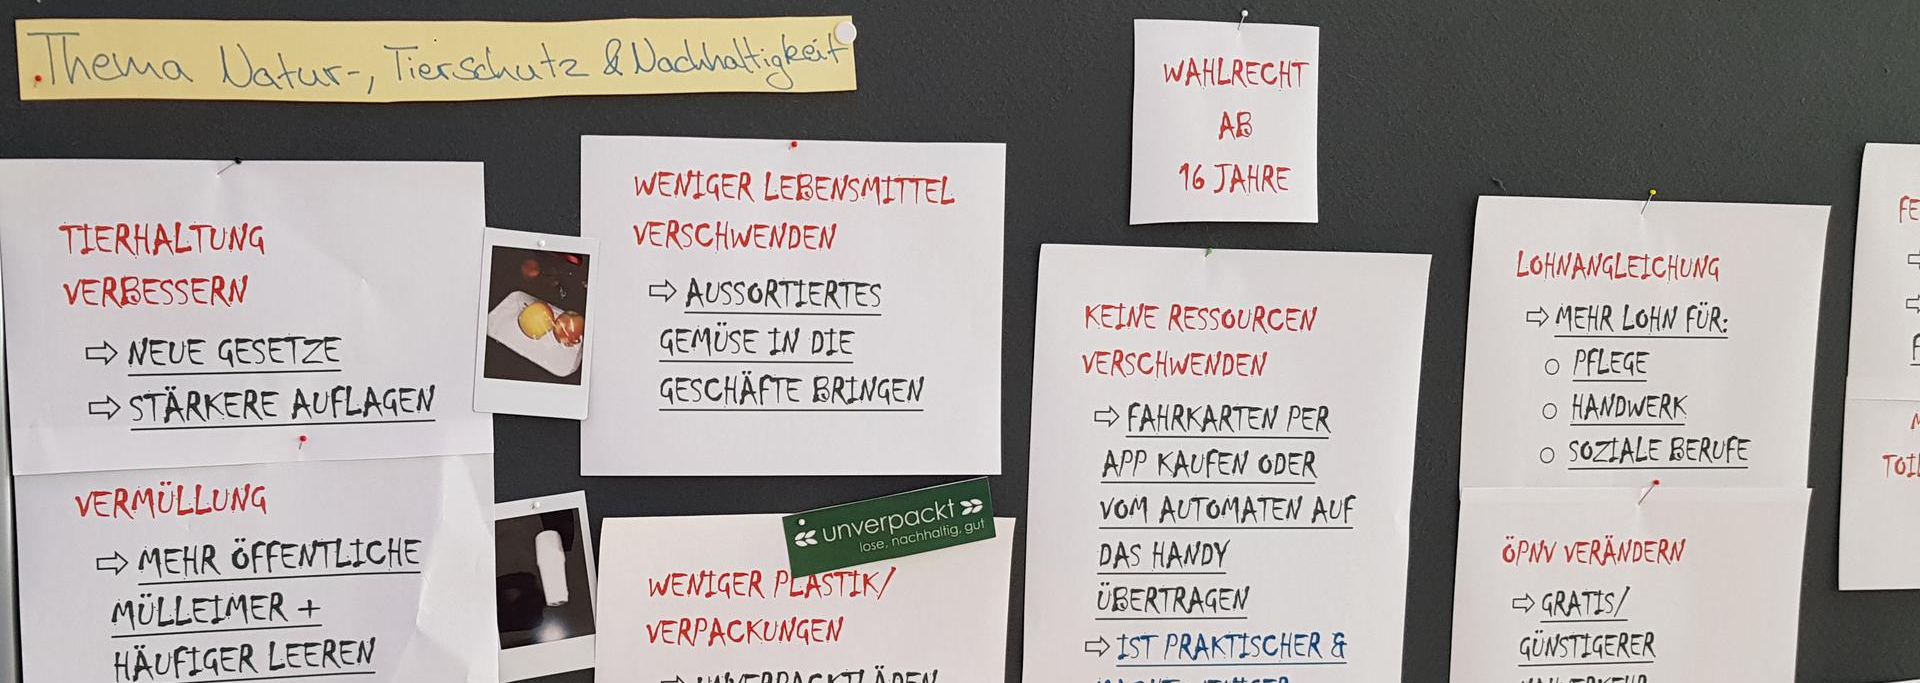 Thema Natur-, Tierschutz & Nachhaltigkeit
TIERHALTUNG
VERBESSERN
⇨ NEUE GESETZE
⇨ STÄRKERE AUFLAGEN
VERMÜLLUNG
⇨ MEHR ÖFFENTLICHE
MÜLLEIMER +
HÄUFIGER LEEREN
WENIGER LEBENSMITTEL
VERSCHWENDEN
⇨ AUSSORTIERTES
GEMÜSE IN DIE
GESCHÄFTE BRINGEN
unverpackt
lose, nachhaltig, gut
WENIGER PLASTIK/
VERPACKUNGEN
⇨ UNVERPACKTLÄDEN
WAHLRECHT
AB
16 JAHRE
KEINE RESSOURCEN
VERSCHWENDEN
⇨ FAHRKARTEN PER
APP KAUFEN ODER
VOM AUTOMATEN AUF
DAS HANDY
ÜBERTRAGEN
⇨ IST PRAKTISCHER &
LOHNANGLEICHUNG
⇨ MEHR LOHN FÜR:
○ PFLEGE
○ HANDWERK
○ SOZIALE BERUFE
ÖPNV VERÄNDERN
⇨ GRATIS/
GÜNSTIGERER
FE
TOI